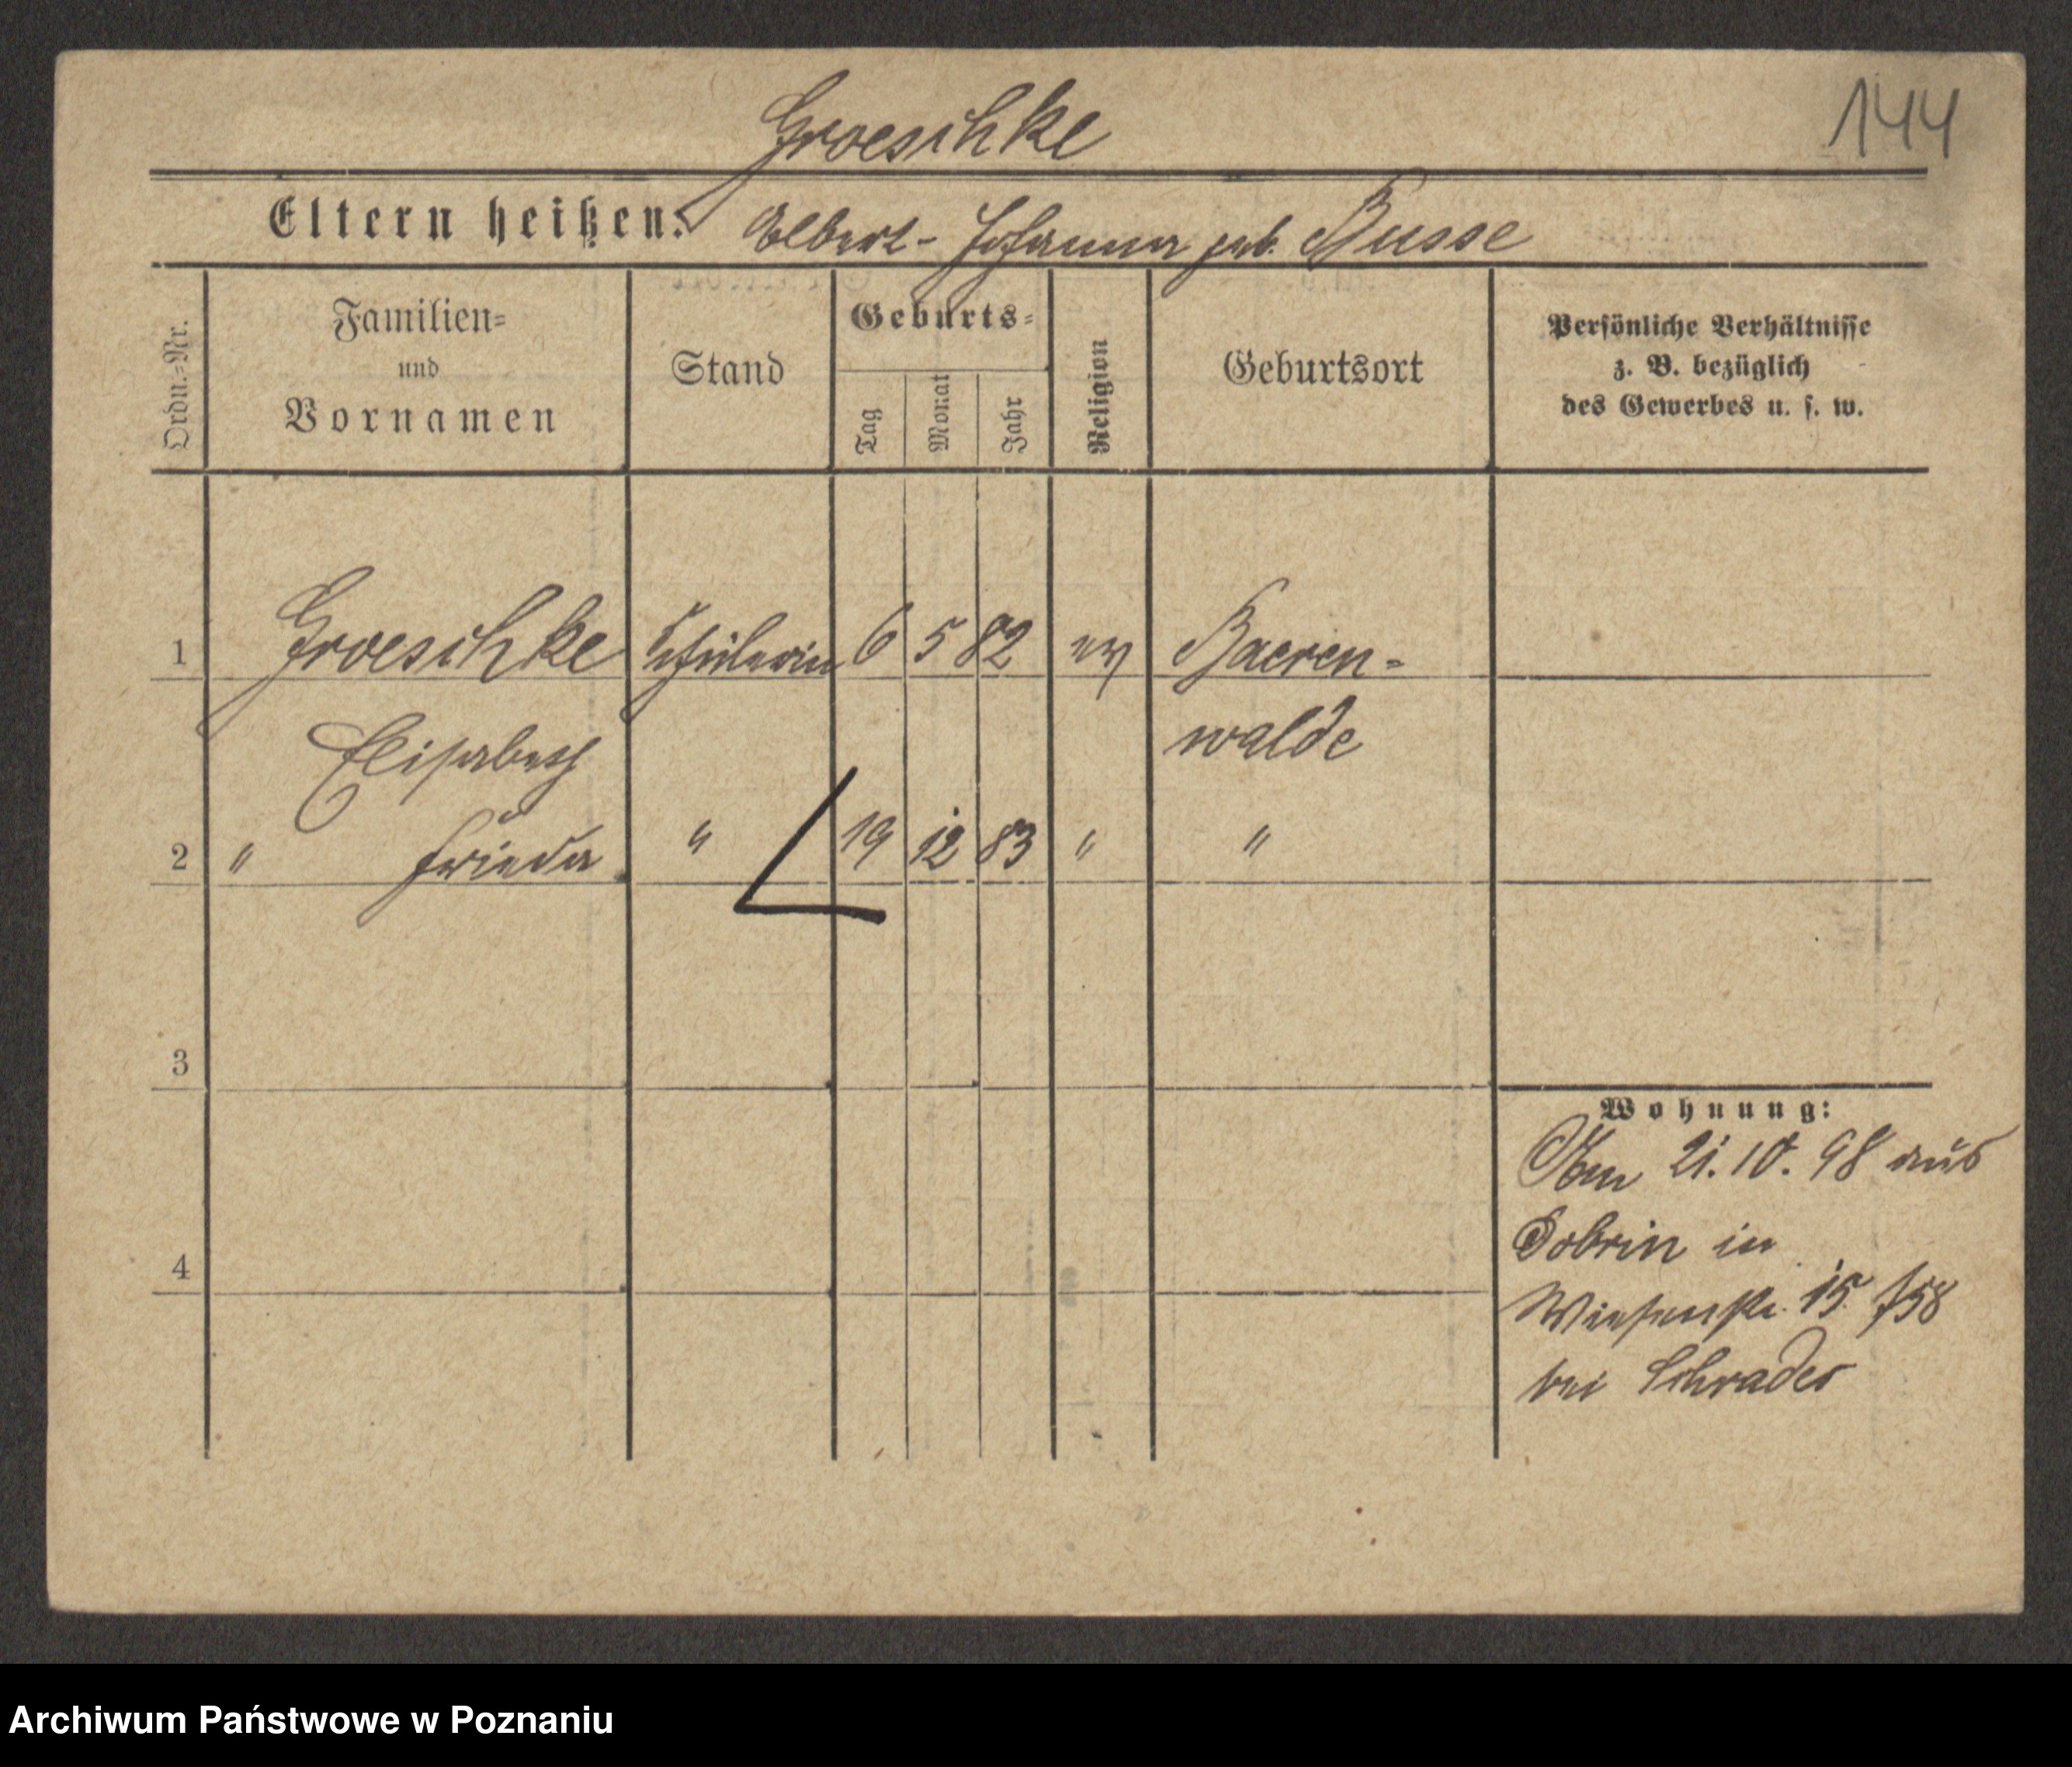 Groeschke
144
Eltern heißen: Albert - Johanna geb. Busse
Ordn.=Nr.
Familien=
und
Vornamen
Stand
Geburts=
Tag
Monat
Jahr
Religion
Geburtsort
Persönliche Verhältnisse
z. B. bezüglich
des Gewerbes u. s. w.
1 Groeschke Schülerin 6 5 82 ev Baeren-
Elisabeth walde
2 " Frieda " 19 12 83 " "
3
Wohnung:
Am 21. 10. 98 aus
Dobrin in
4
Wiesenstr. 15 /58
bei Schrader
Archiwum Państwowe w Poznaniu